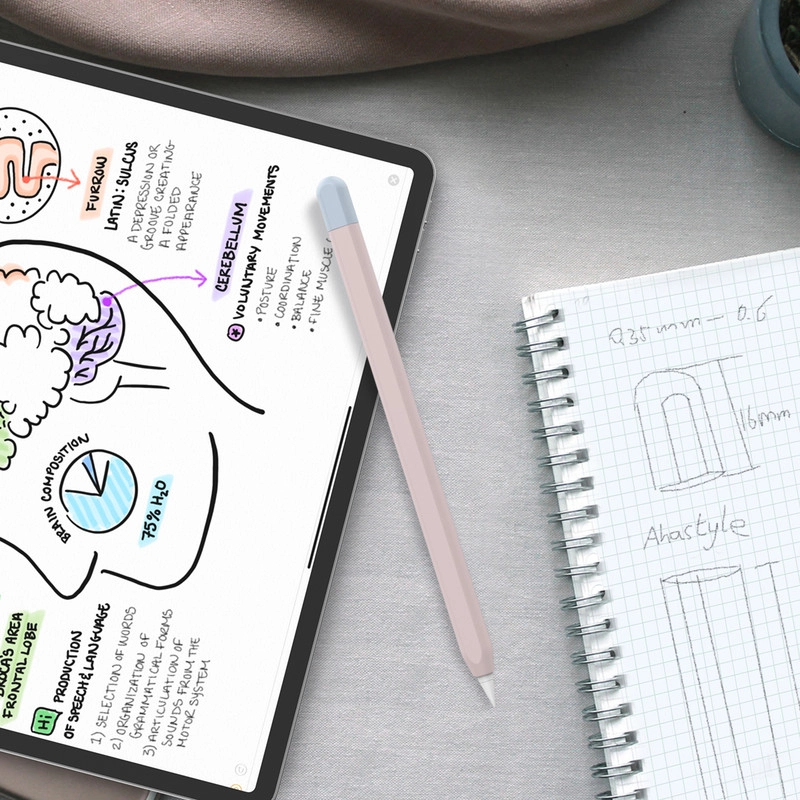 FURROW
LATIN: SULCUS
A DEPRESSION OR
GROOVE CREATING
A FOLDED
APPEARANCE
CEREBELLUM
* VOLUNTARY MOVEMENTS
• POSTURE
• COORDINATION
• BALANCE
• FINE MUSCLE
BRAIN COMPOSITION
75% H2O
BROCA'S AREA
FRONTAL LOBE
Hi PRODUCTION
OF SPEECH & LANGUAGE
1) SELECTION OF WORDS
2) ORGANIZATION OF
GRAMMATICAL FORMS
3) ARTICULATION OF
SOUNDS FROM THE
MOTOR SYSTEM
0.35 mm - 0.6
16mm
Ahastyle